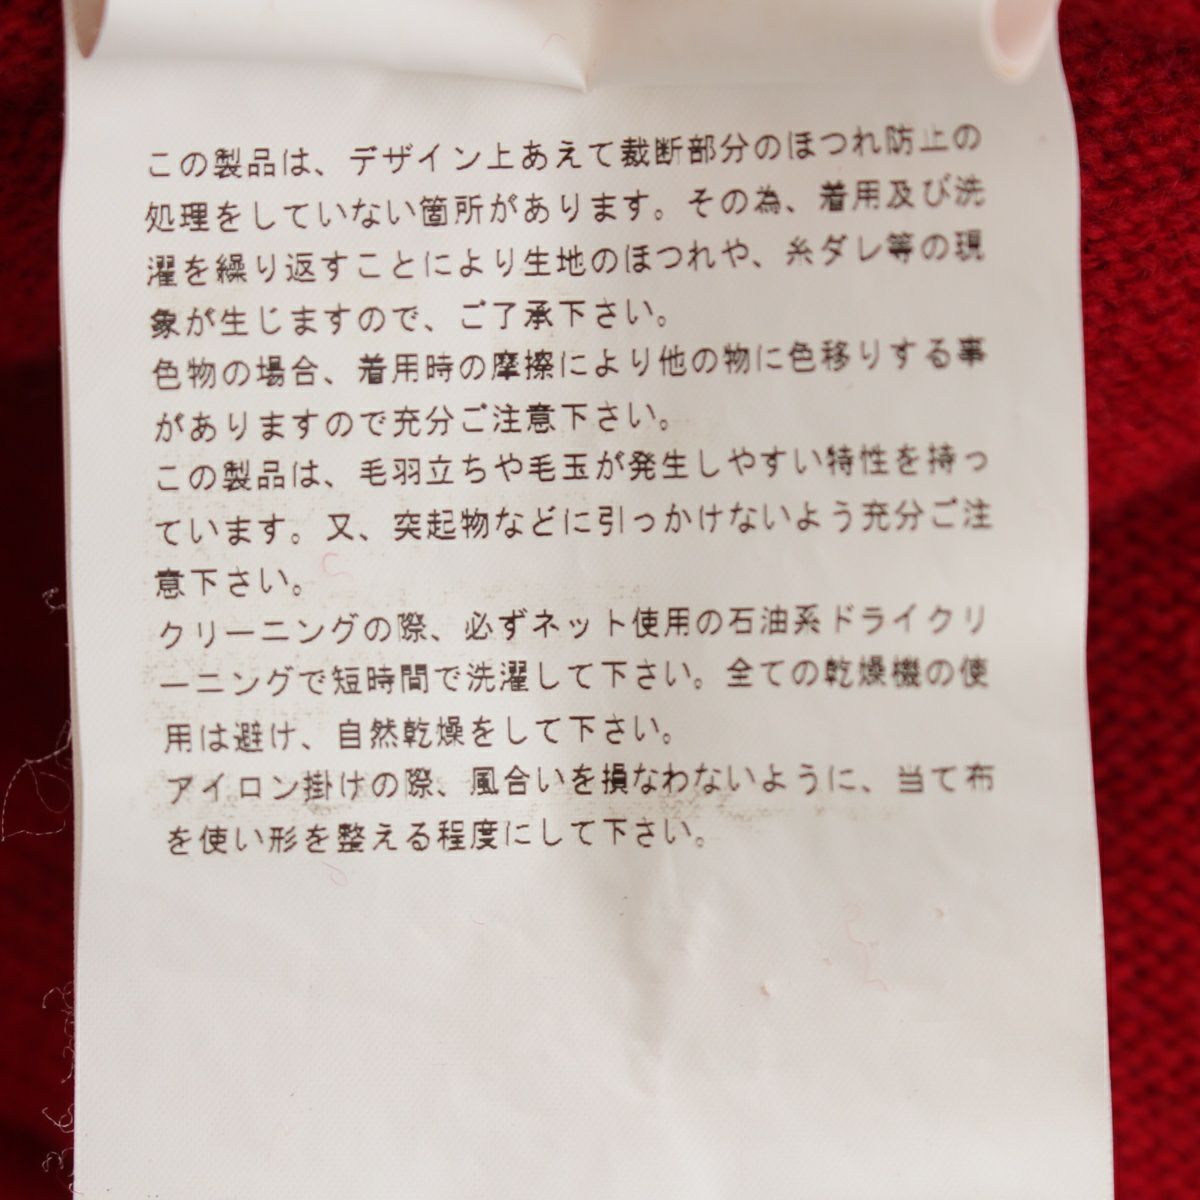 この製品は、デザイン上あえて裁断部分のほつれ防止の
処理をしていない箇所があります。その為、着用及び洗
濯を繰り返すことにより生地のほつれや、糸ダレ等の現
象が生じますので、ご了承下さい。
色物の場合、着用時の摩擦により他の物に色移りする事
がありますので充分ご注意下さい。
この製品は、毛羽立ちや毛玉が発生しやすい特性を持っ
ています。又、突起物などに引っかけないよう充分ご注
意下さい。
クリーニングの際、必ずネット使用の石油系ドライクリ
ーニングで短時間で洗濯して下さい。全ての乾燥機の使
用は避け、自然乾燥をして下さい。
アイロン掛けの際、風合いを損なわないように、当て布
を使い形を整える程度にして下さい。